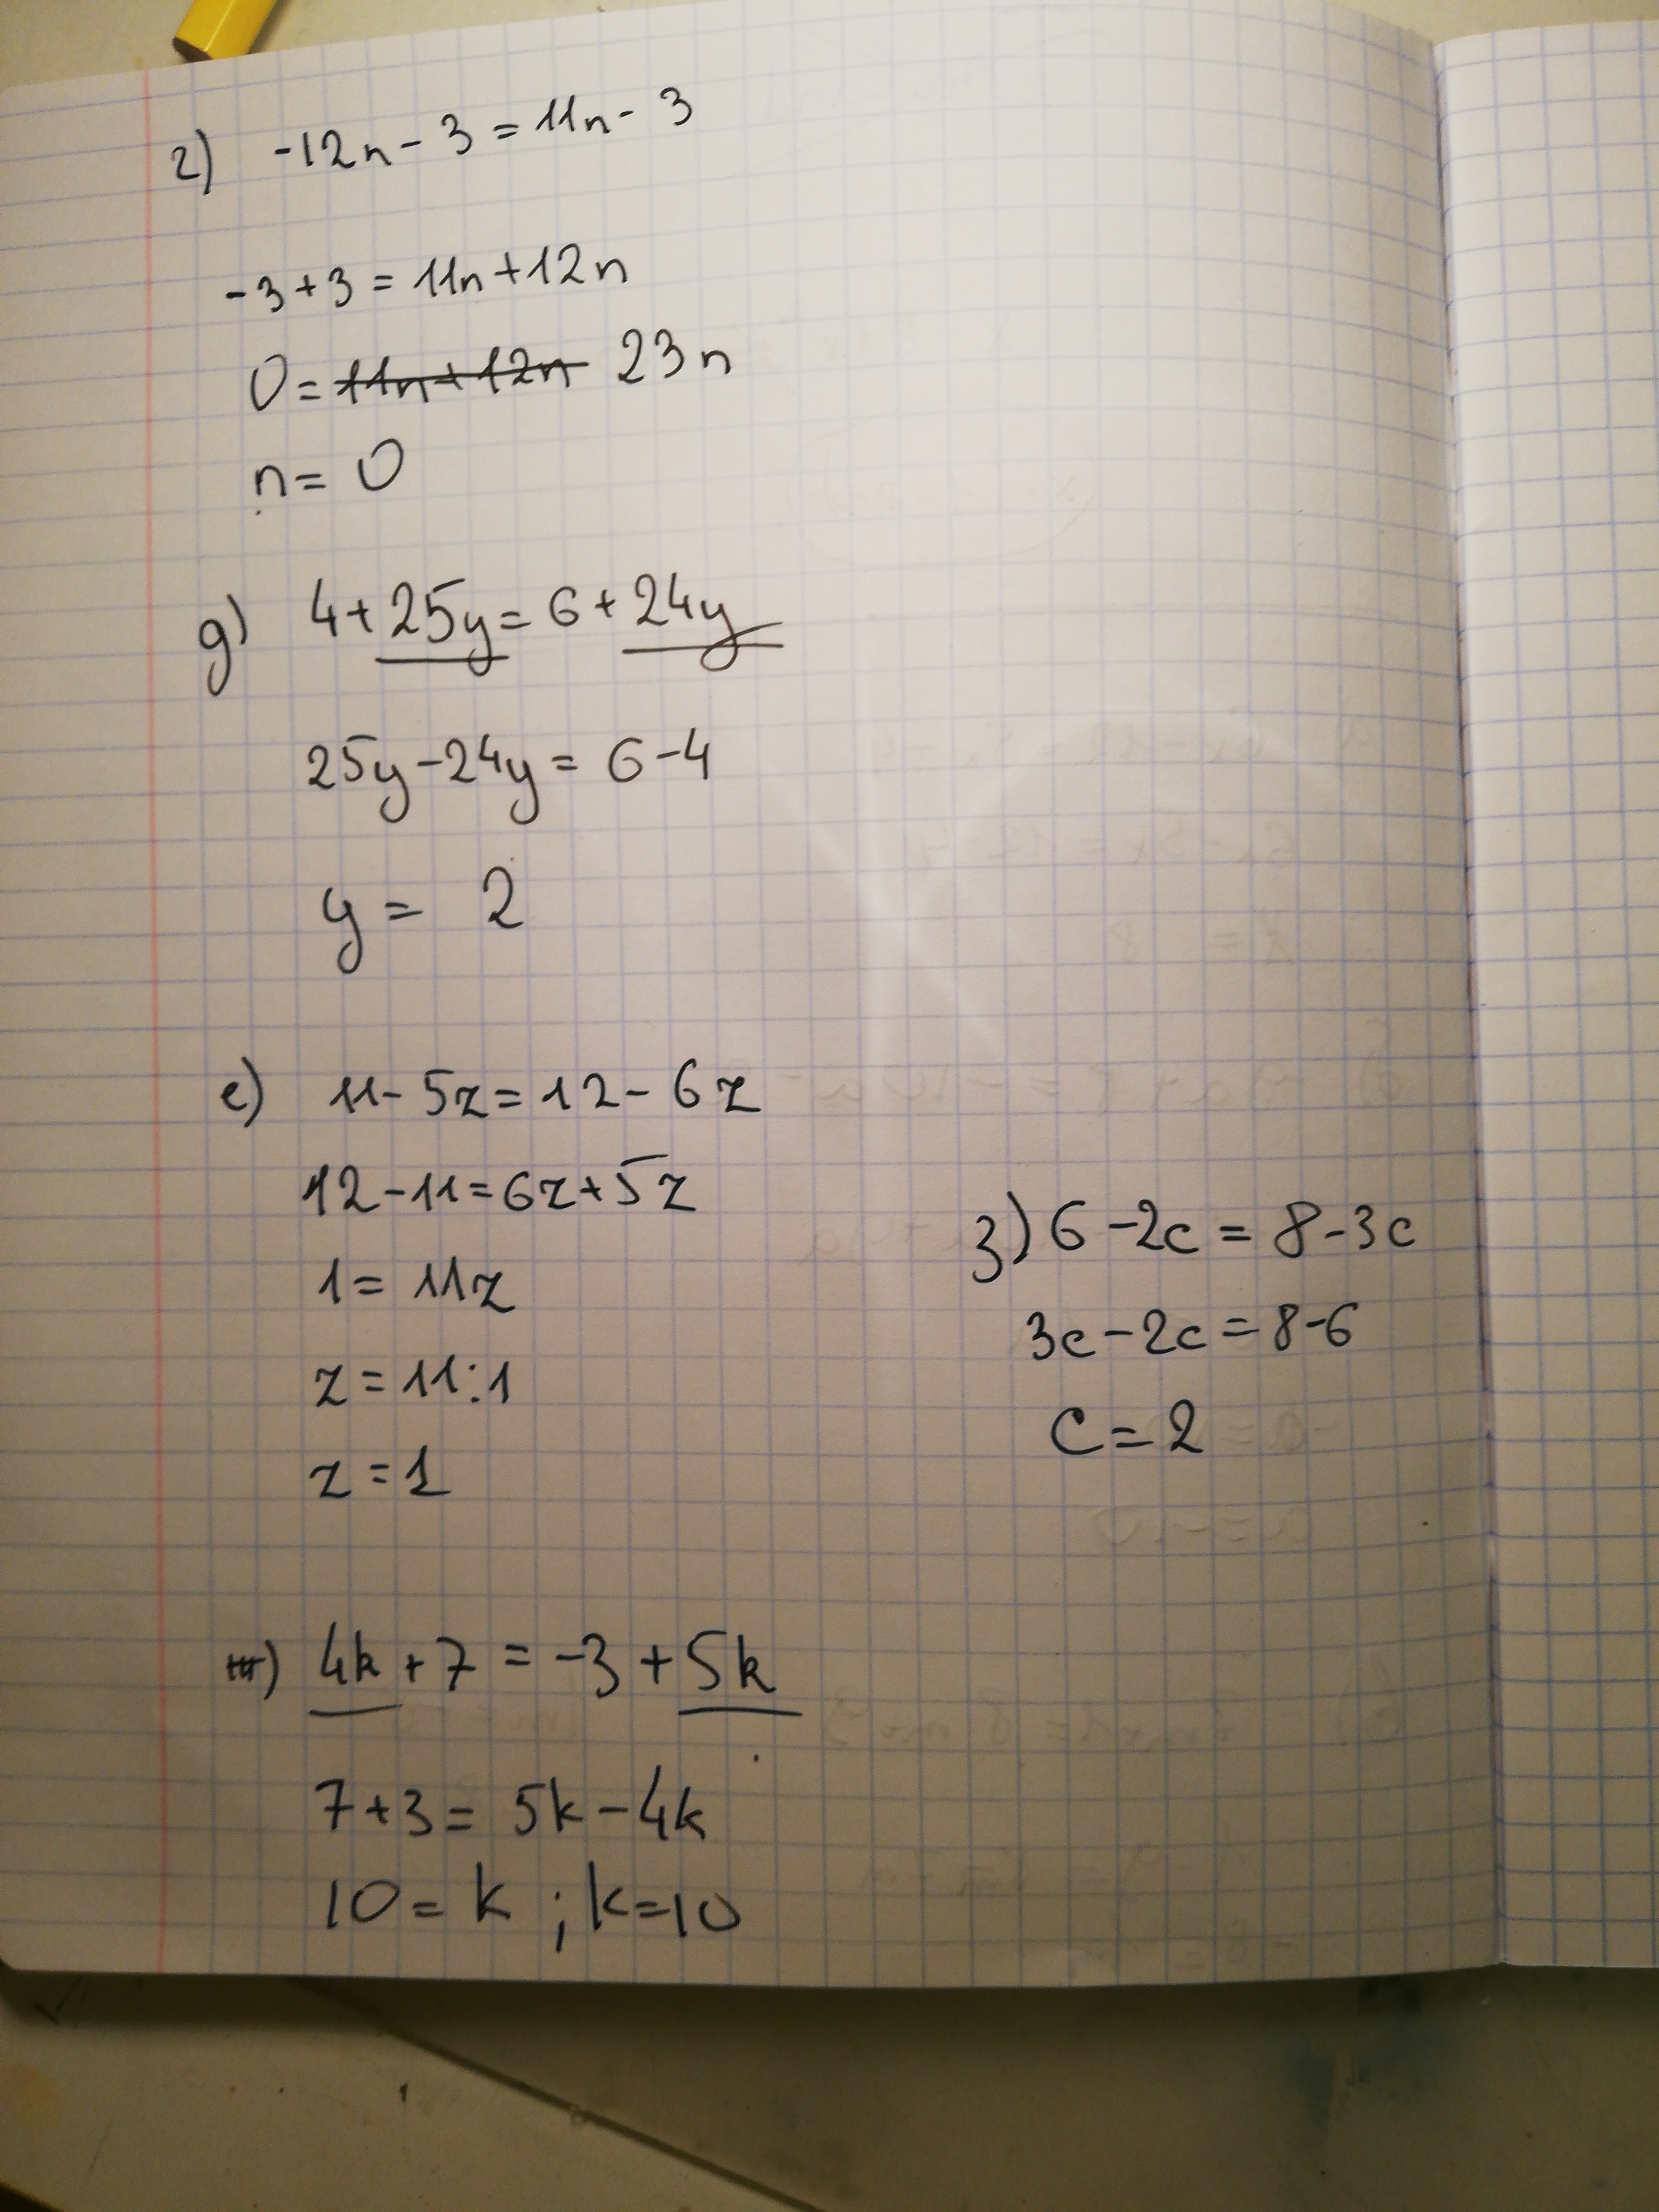 г) -12n - 3 = 11n - 3
-3 + 3 = 11n + 12n
0 = 11n + 12n 23n
n = 0
g) 4 + 25y = 6 + 24y
25y - 24y = 6 - 4
y = 2
e) 11 - 5z = 12 - 6z
12 - 11 = 6z + 5z
1 = 11z
z = 11:1
z = 1
з) 6 - 2c = 8 - 3c
3c - 2c = 8 - 6
c = 2
ж) 4k + 7 = -3 + 5k
7 + 3 = 5k - 4k
10 = k ; k = 10